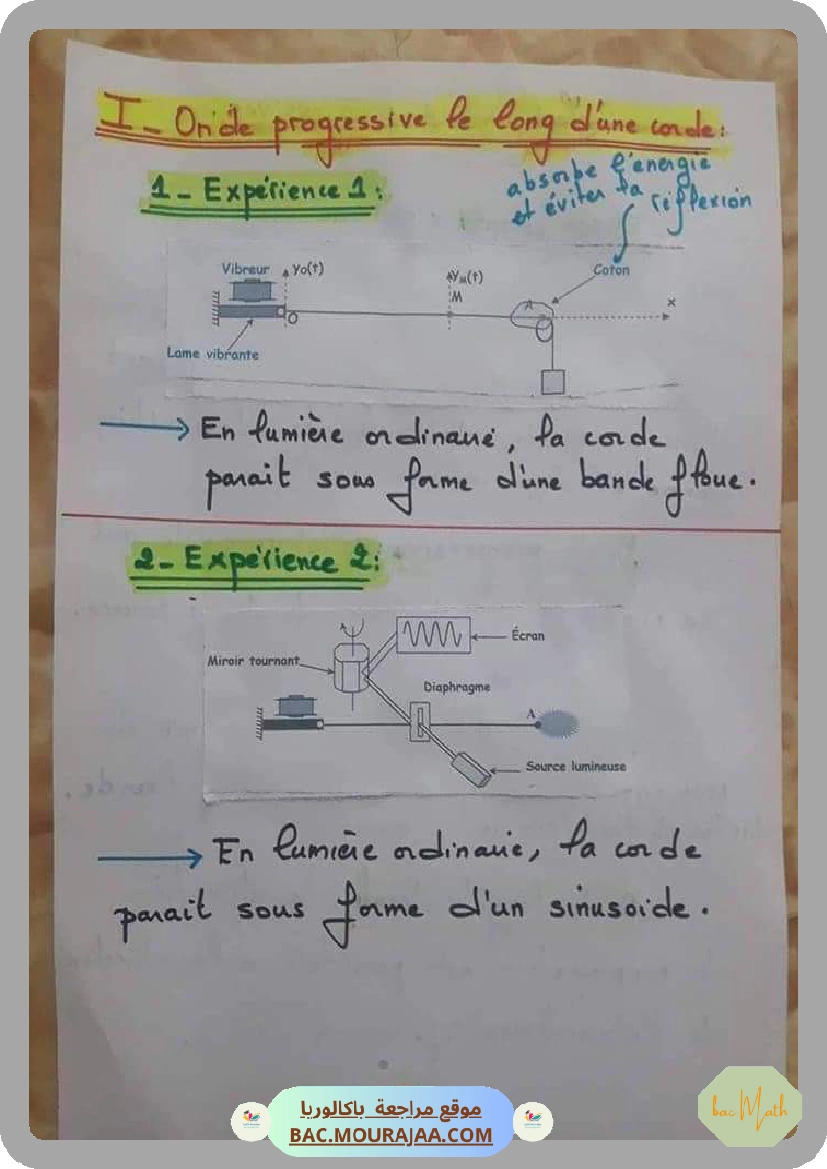 I - Onde progressive le long d'une corde:
1 - Expérience 1:
absorbe l'énergie
et éviter la réflexion
Vibreur
yo(t)
yM(t)
M
Coton
A
x
O
Lame vibrante
En lumière ordinaire, la corde
parait sous forme d'une bande floue.
2 - Expérience 2:
Écran
Miroir tournant
Diaphragme
A
Source lumineuse
En lumière ordinaire, la corde
parait sous forme d'un sinusoide.
موقع مراجعة باكالوريا
BAC.MOURAJAA.COM
bac Math